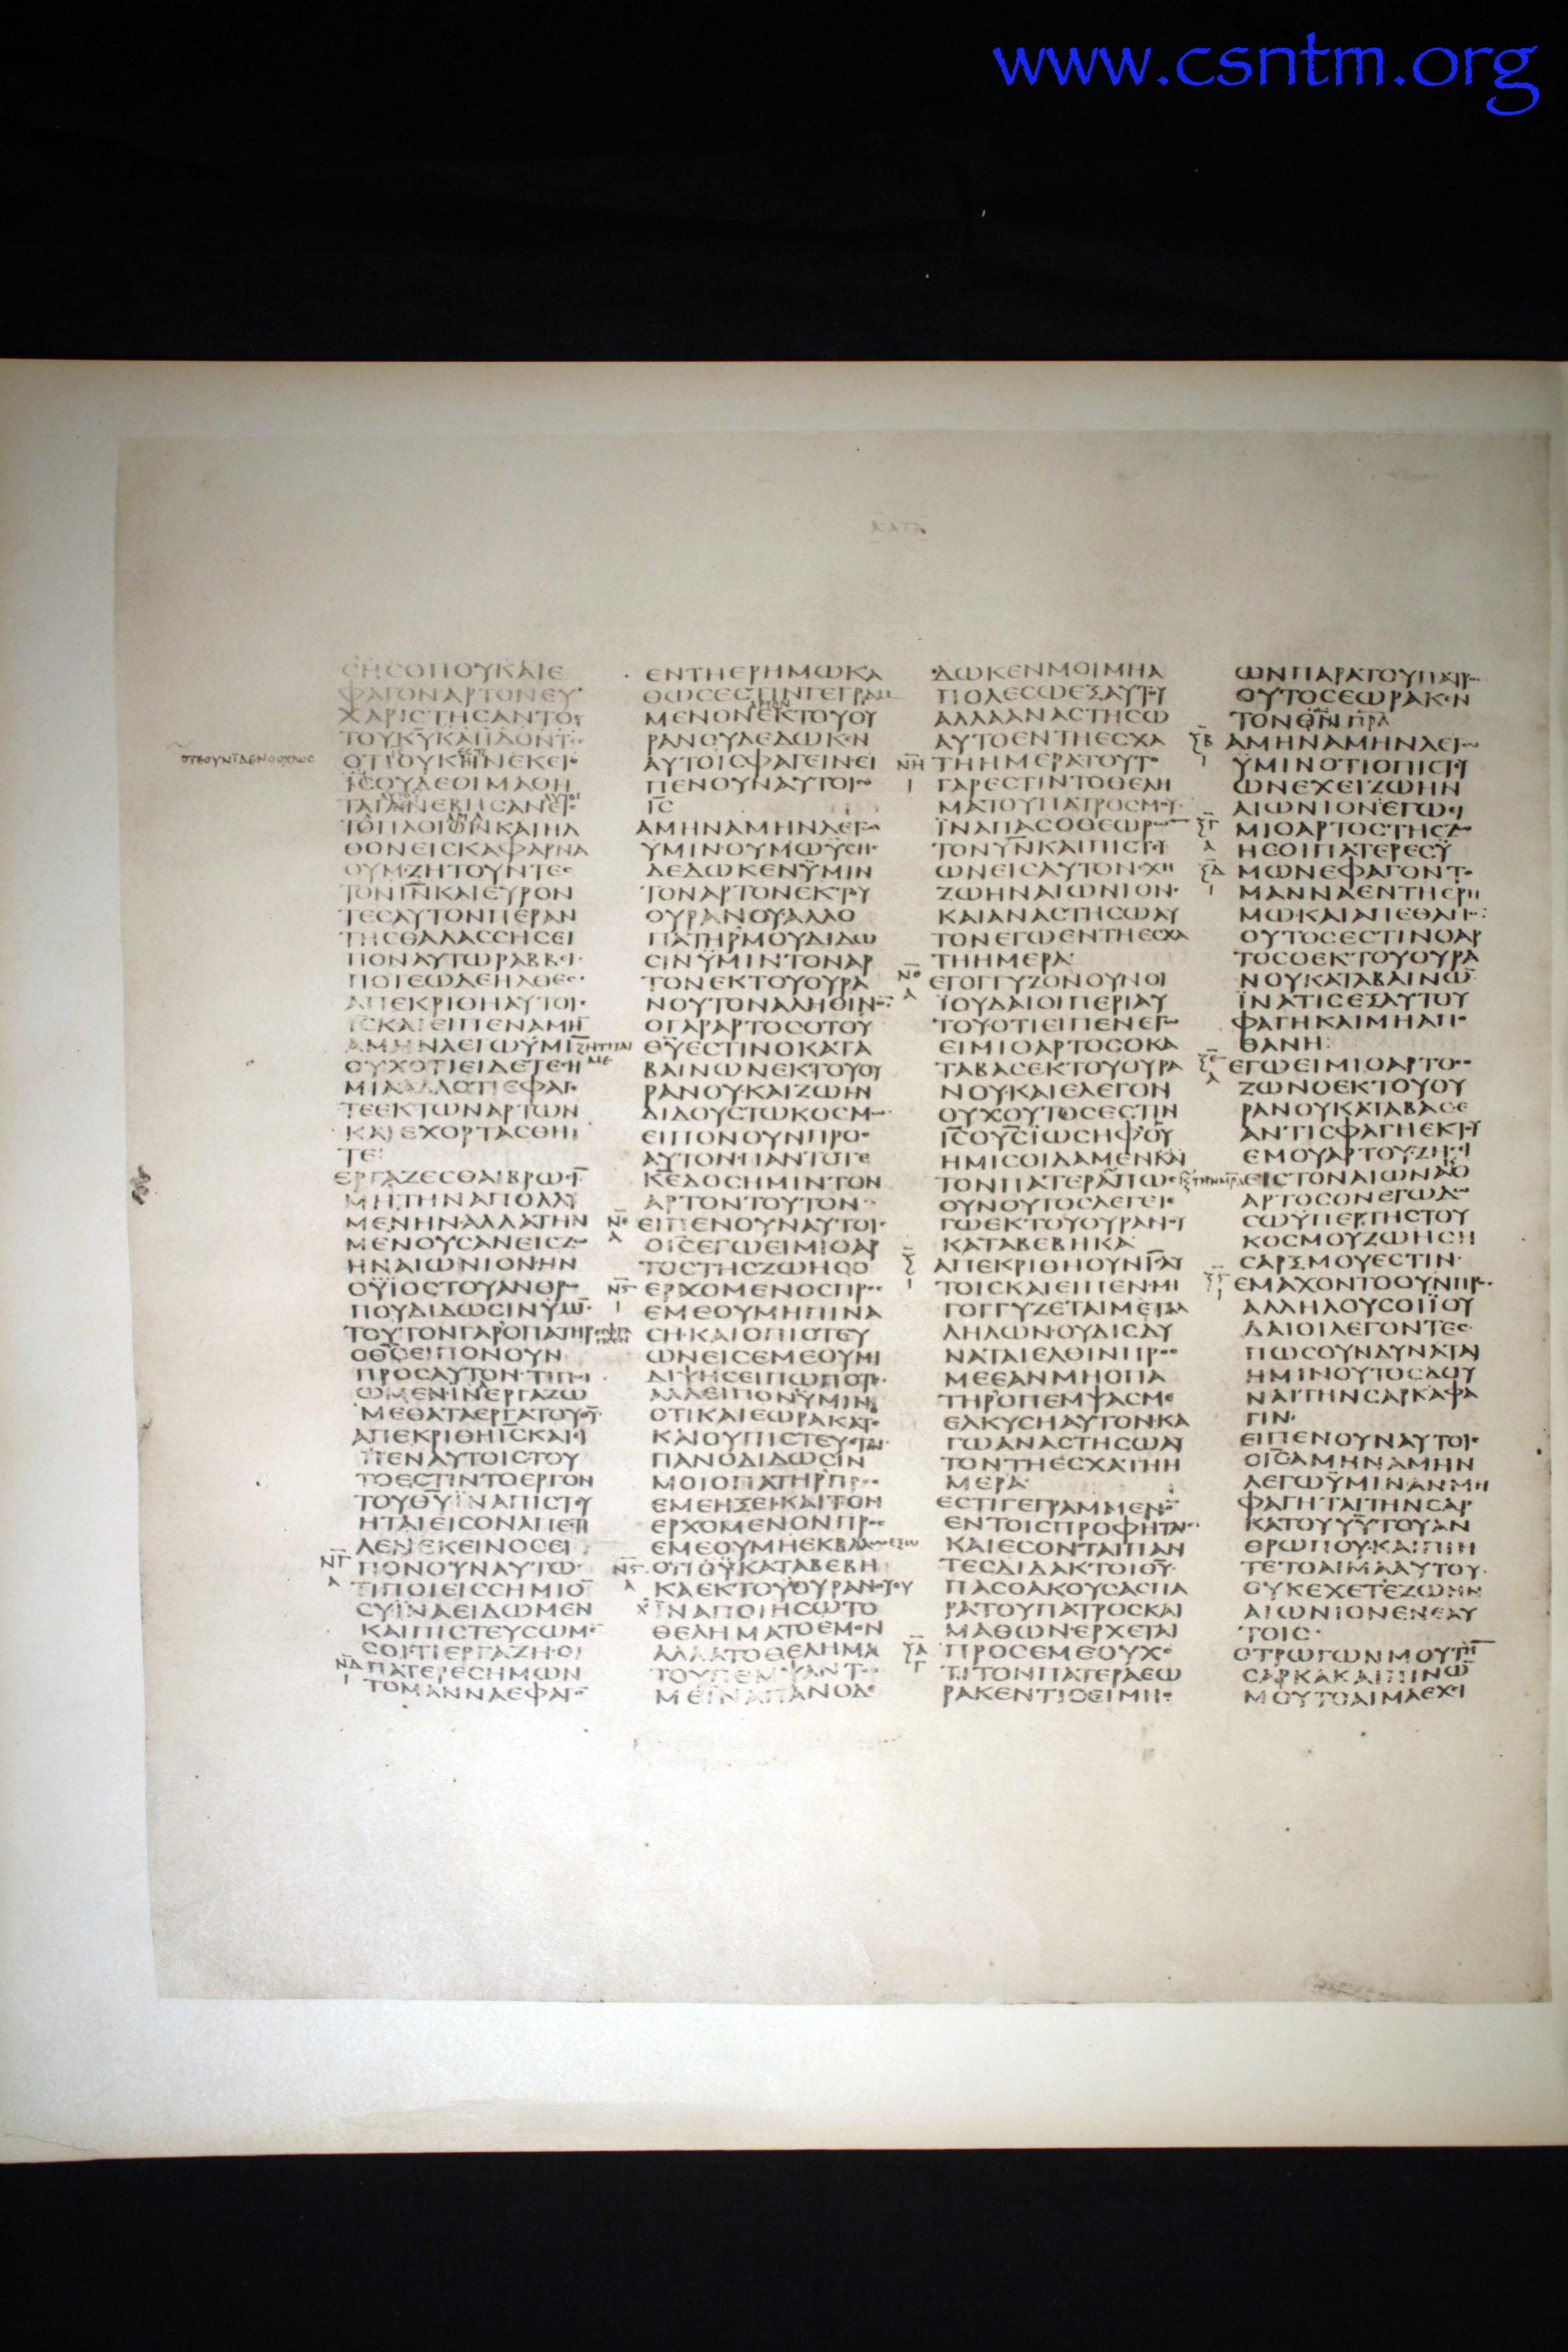 www.csntm.org
ΚΑΤΑ
ϹΗϹΟΠΟΥΚΑΙΕ
ΦΑΓΟΝΑΡΤΟΝΕΥ
ΧΑΡΙϹΤΗϹΑΝΤΟϹ
ΤΟΥΚΥΚΑΙΠΛΟΝΤ
ΟΤΙΟΥΚΗΝΕΚΕΙ
ΤΟΠΛΟΙΟΝΚΑΙΗΛ
ΘΟΝΕΙϹΚΑΦΑΡΝΑ
ΟΥΜΖΗΤΟΥΝΤΕϹ
ΤΟΝΙΝΚΑΙΕΥΡΟΝ
ΤΕϹΑΥΤΟΝΠΕΡΑΝ
ΤΗϹΘΑΛΑϹϹΗϹΕΙ
ΠΟΝΑΥΤΩΡΑΒΒΙ
ΠΟΤΕΩΔΕΗΛΘΕϹ
ΑΠΕΚΡΙΘΗΑΥΤΟΙϹ
ΙϹΚΑΙΕΙΠΕΝΑΜΗ
ΑΜΗΝΛΕΓΩΥΜΙ ΖΗΤΙΤΑΙ
ΟΥΧΟΤΙΕΙΔΕΤΕϹΗ ΜΕ
ΜΙΑΑΛΛΟΤΙΕΦΑΓ
ΤΕΕΚΤΩΝΑΡΤΩΝ
ΚΑΙΕΧΟΡΤΑϹΘΗ
ΤΕ
ΕΡΓΑΖΕϹΘΑΙΒΡΩϹΙ
ΜΗΤΗΝΑΠΟΛΛΥ
ΜΕΝΗΝΑΛΛΑΤΗΝ
ΜΕΝΟΥϹΑΝΕΙϹΖΩ
ΗΝΑΙΩΝΙΟΝΗΝ
ΟΥΙΟϹΤΟΥΑΝΘΡ
ΠΟΥΔΙΔΩϹΙΝΥΜΙ
ΤΟΥΤΟΝΓΑΡΟΠΑΤΗΡ
ΟΘϹΕΙΠΟΝΟΥΝ
ΠΡΟϹΑΥΤΟΝΤΙΠΟΙ
ΩΜΕΝΙΝΕΡΓΑΖΩ
ΜΕΘΑΤΑΕΡΓΑΤΟΥΘΥ
ΑΠΕΚΡΙΘΗΙϹΚΑΙΕΙ
ΠΕΝΑΥΤΟΙϹΤΟΥ
ΤΟΕϹΤΙΝΤΟΕΡΓΟΝ
ΤΟΥΘΥΙΝΑΠΙϹΤΕΥ
ΗΤΑΙΕΙϹΟΝΑΠΕϹΤΙ
ΛΕΝΕΚΕΙΝΟϹΕΙ
ΝΓ ΠΟΝΟΥΝΑΥΤΩ
Α ΤΙΠΟΙΕΙϹϹΗΜΙΟ
ϹΥΙΝΑΕΙΔΩΜΕΝ
ΚΑΙΠΙϹΤΕΥϹΩΜΕ
ϹΟΙΤΙΕΡΓΑΖΗΟΙ
ΝΔ ΠΑΤΕΡΕϹΗΜΩΝ
Ι ΤΟΜΑΝΝΑΕΦΑΓ
ΕΝΤΗΕΡΗΜΩΚΑ
ΘΩϹΕϹΤΙΝΓΕΓΡΑΜ
ΜΕΝΟΝΕΚΤΟΥΟΥ
ΡΑΝΟΥΔΕΔΩΚΕΝ
ΑΥΤΟΙϹΦΑΓΕΙΝΕΙ
ΠΕΝΟΥΝΑΥΤΟΙϹ
ΙϹ
ΑΜΗΝΑΜΗΝΛΕΓΩ
ΥΜΙΝΟΥΜΩΥϹΗϹ
ΔΕΔΩΚΕΝΥΜΙΝ
ΤΟΝΑΡΤΟΝΕΚΤΟΥ
ΟΥΡΑΝΟΥΑΛΛΟ
ΠΑΤΗΡΜΟΥΔΙΔΩ
ϹΙΝΥΜΙΝΤΟΝΑΡ
ΤΟΝΕΚΤΟΥΟΥΡΑ
ΝΟΥΤΟΝΑΛΗΘΙΝΟ
ΟΓΑΡΑΡΤΟϹΟΤΟΥ
ΘΥΕϹΤΙΝΟΚΑΤΑ
ΒΑΙΝΩΝΕΚΤΟΥΟΥ
ΡΑΝΟΥΚΑΙΖΩΗΝ
ΔΙΔΟΥϹΤΩΚΟϹΜΩ
ΕΙΠΟΝΟΥΝΠΡΟϹ
ΑΥΤΟΝΠΑΝΤΟΤΕ
ΚΕΔΟϹΗΜΙΝΤΟΝ
ΑΡΤΟΝΤΟΥΤΟΝ
ΝΕ ΕΙΠΕΝΟΥΝΑΥΤΟΙϹ
Α ΟΙϹΕΓΩΕΙΜΙΟΑΡ
ΤΟϹΤΗϹΖΩΗϹΟ
ΝϚ ΕΡΧΟΜΕΝΟϹΠΡΟϹ
Ι ΕΜΕΟΥΜΗΠΙΝΑ
ϹΗΚΑΙΟΠΙϹΤΕΥ
ΩΝΕΙϹΕΜΕΟΥΜΙ
ΔΙΨΗϹΕΙΠΩΠΟΤΕ
ΑΛΛΕΙΠΟΝΥΜΙΝ
ΟΤΙΚΑΙΕΩΡΑΚΑΤΕ
ΚΑΙΟΥΠΙϹΤΕΥΕΤΑΙ
ΠΑΝΟΔΙΔΩϹΙΝ
ΜΟΙΟΠΑΤΗΡΠΡΟϹ
ΕΜΕΗΞΕΙΚΑΙΤΟΝ
ΕΡΧΟΜΕΝΟΝΠΡΟϹ
ΕΜΕΟΥΜΗΕΚΒΑΛΩΕΞΩ
ΟΤΙΟΥΚΑΤΑΒΕΒΗ
ΚΑΕΚΤΟΥΟΥΡΑΝΟΥΟΥ
ΙΝΑΠΟΙΗϹΩΤΟ
ΘΕΛΗΜΑΤΟΕΜΟΝ
ΑΛΛΑΤΟΘΕΛΗΜΑ
ΤΟΥΠΕΜΨΑΝΤΟϹ
ΜΕΙΝΑΠΑΝΟΔΕ
ΔΩΚΕΝΜΟΙΜΗΑ
ΠΟΛΕϹΩΕΞΑΥΤΟΥ
ΑΛΛΑΑΝΑϹΤΗϹΩ
ΑΥΤΟΕΝΤΗΕϹΧΑ
ΝΗ ΤΗΗΜΕΡΑΤΟΥΤΟ
Ι ΓΑΡΕϹΤΙΝΤΟΘΕΛΗ
ΜΑΤΟΥΠΑΤΡΟϹΜΟΥ
ΙΝΑΠΑϹΟΘΕΩΡΩ
ΤΟΝΥΝΚΑΙΠΙϹΤΕΥ
ΩΝΕΙϹΑΥΤΟΝΕΧΗ
ΖΩΗΝΑΙΩΝΙΟΝ
ΚΑΙΑΝΑϹΤΗϹΩΑΥ
ΤΟΝΕΓΩΕΝΤΗΕϹΧΑ
ΤΗΗΜΕΡΑ
ΝΘ ΕΓΟΓΓΥΖΟΝΟΥΝΟΙ
Α ΙΟΥΔΑΙΟΙΠΕΡΙΑΥ
ΤΟΥΟΤΙΕΙΠΕΝΕΓΩ
ΕΙΜΙΟΑΡΤΟϹΟΚΑ
ΤΑΒΑϹΕΚΤΟΥΟΥΡΑ
ΝΟΥΚΑΙΕΛΕΓΟΝ
ΟΥΧΟΥΤΟϹΕϹΤΙΝ
ΙϹΟΥϹΙΩϹΗΦΟΥ
ΗΜΙϹΟΙΔΑΜΕΝΚΑΙ
ΤΟΝΠΑΤΕΡΑΠΩϹ
ΟΥΝΟΥΤΟϹΛΕΓΕΙΕ
ΓΩΕΚΤΟΥΟΥΡΑΝΟΥ
ΚΑΤΑΒΕΒΗΚΑ
Ξ ΑΠΕΚΡΙΘΗΟΥΝΙϹΑΥ
Ι ΤΟΙϹΚΑΙΕΙΠΕΝΜΙ
ΓΟΓΓΥΖΕΤΑΙΜΕΤΑ
ΛΗΛΩΝΟΥΔΙϹΔΥ
ΝΑΤΑΙΕΛΘΙΝΠΡΟϹ
ΜΕΕΑΝΜΗΟΠΑ
ΤΗΡΟΠΕΜΨΑϹΜΕ
ΕΛΚΥϹΗΑΥΤΟΝΚΑ
ΓΩΑΝΑϹΤΗϹΩΑΥ
ΤΟΝΤΗΕϹΧΑΤΗΗ
ΜΕΡΑ
ΕϹΤΙΓΕΓΡΑΜΜΕΝΟ
ΕΝΤΟΙϹΠΡΟΦΗΤΑΙϹ
ΚΑΙΕϹΟΝΤΑΙΠΑΝ
ΤΕϹΔΙΔΑΚΤΟΙΘΥ
ΠΑϹΟΑΚΟΥϹΑϹΠΑ
ΡΑΤΟΥΠΑΤΡΟϹΚΑΙ
ΜΑΘΩΝΕΡΧΕΤΑΙ
ΞΑ ΠΡΟϹΕΜΕΟΥΧΟ
Γ ΤΙΤΟΝΠΑΤΕΡΑΕΩ
ΡΑΚΕΝΤΙϹΕΙΜΗΟ
ΩΝΠΑΡΑΤΟΥΠΑΤΡΟϹ
ΟΥΤΟϹΕΩΡΑΚΕΝ
ΤΟΝΘΝΠΡΑ
ΞΒ ΑΜΗΝΑΜΗΝΛΕΓΩ
Ι ΥΜΙΝΟΤΙΟΠΙϹΤΕΥ
ΩΝΕΧΕΙΖΩΗΝ
ΑΙΩΝΙΟΝΕΓΩΕΙ
ΞΓ ΜΙΟΑΡΤΟϹΤΗϹΖΩ
Α ΗϹΟΙΠΑΤΕΡΕϹΥ
ΞΔ ΜΩΝΕΦΑΓΟΝΤΟ
Ι ΜΑΝΝΑΕΝΤΗΕΡΗ
ΜΩΚΑΙΑΠΕΘΑΝΟ
ΟΥΤΟϹΕϹΤΙΝΟΑΡ
ΤΟϹΟΕΚΤΟΥΟΥΡΑ
ΝΟΥΚΑΤΑΒΑΙΝΩ
ΙΝΑΤΙϹΕΞΑΥΤΟΥ
ΦΑΓΗΚΑΙΜΗΑΠΟ
ΘΑΝΗ
ΞΕ ΕΓΩΕΙΜΙΟΑΡΤΟϹΟ
Α ΖΩΝΟΕΚΤΟΥΟΥ
ΡΑΝΟΥΚΑΤΑΒΑϹΕ
ΑΝΤΙϹΦΑΓΗΕΚΤΟΥ
ΕΜΟΥΑΡΤΟΥΖΗϹΕΙ
ΕΙϹΤΟΝΑΙΩΝΑΟ
ΑΡΤΟϹΟΝΕΓΩΔΩ
ϹΩΥΠΕΡΤΗϹΤΟΥ
ΚΟϹΜΟΥΖΩΗϹΗ
ϹΑΡΞΜΟΥΕϹΤΙΝ
ΞϚ ΕΜΑΧΟΝΤΟΟΥΝΠΡΟϹ
ΑΛΛΗΛΟΥϹΟΙΙΟΥ
ΔΑΙΟΙΛΕΓΟΝΤΕϹ
ΠΩϹΟΥΝΔΥΝΑΤΑΙ
ΗΜΙΝΟΥΤΟϹΔΟΥ
ΝΑΙΤΗΝϹΑΡΚΑΦΑ
ΓΙΝ
ΕΙΠΕΝΟΥΝΑΥΤΟΙϹ
ΟΙϹΑΜΗΝΑΜΗΝ
ΛΕΓΩΥΜΙΝΑΝΜΗ
ΦΑΓΗΤΑΙΤΗΝϹΑΡ
ΚΑΤΟΥΥΥΤΟΥΑΝ
ΘΡΩΠΟΥΚΑΙΠΙΗ
ΤΕΤΟΑΙΜΑΑΥΤΟΥ
ΟΥΚΕΧΕΤΕΖΩΗΝ
ΑΙΩΝΙΟΝΕΝΕΑΥ
ΤΟΙϹ
ΟΤΡΩΓΩΝΜΟΥΤΗ
ϹΑΡΚΑΚΑΙΠΙΝΩ
ΜΟΥΤΟΑΙΜΑΕΧΕΙ